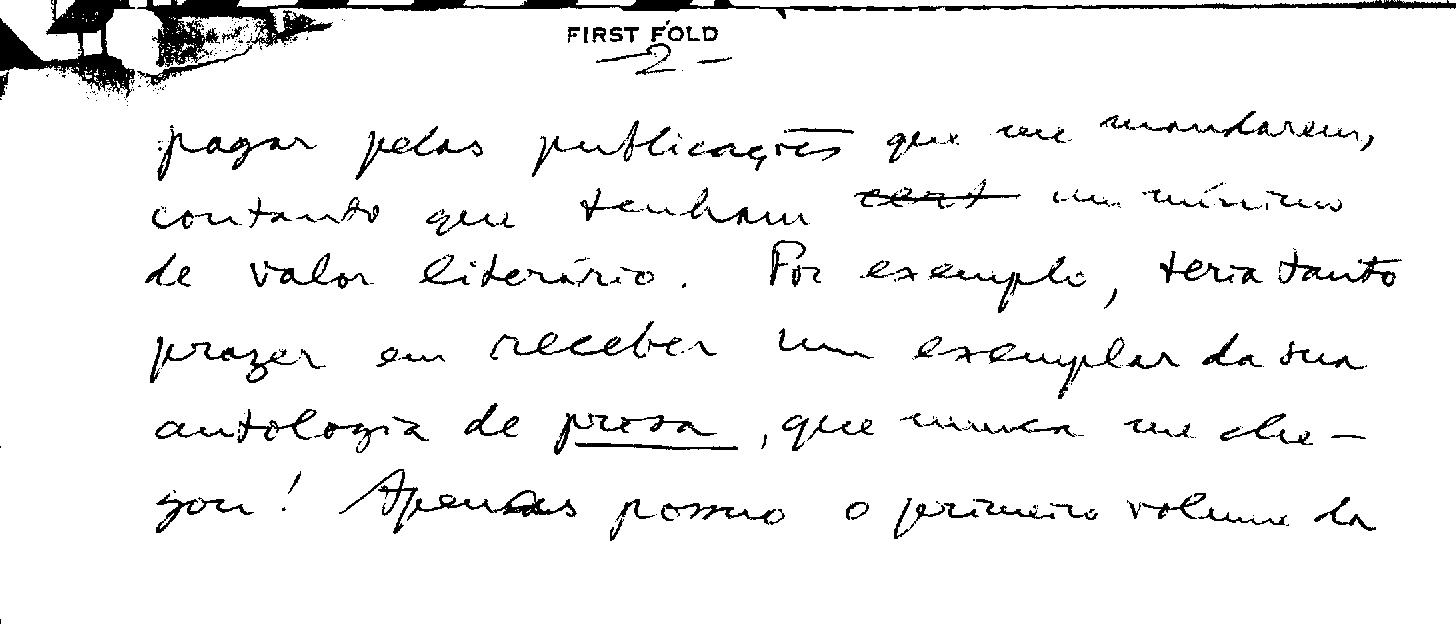 FIRST FOLD
-2-
pagar pelas publicações que me mandarem,
contanto que tenham cert um mínimo
de valor literário. Por exemplo, teria tanto
prazer em receber um exemplar da sua
antologia de prosa, que nunca me che-
gou! Apenas possuo o primeiro volume da